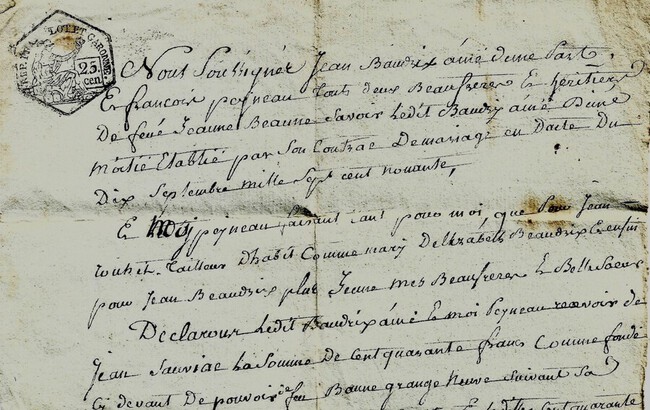 LOT ET GARONNE.
25.
cen.
Nous Soussignés Jean Baudrix ainé d'une Part,
Et francois peyneau touts deux Beaufreres & heritiers
De feue Jeanne Beaune Savoir Ledit Baudrix ainé De une
moitié Etablie par Son Contrac De mariage en Date Du
Dix Septembre mille Sept cent nonante,
E moy peyneau faisant tant pour moi, que pour Jean
tailleur Dhabit Comme mary DElizabeth Beaudrix Et enfin
pour Jean Beaudrix plus Jeune mes Beaufreres & Belle Soeur
Declarons Ledit Baudrix ainé E moi Peyneau recevoir de
Jean Sauviac La Somme De Cent quarante francs Comme fondé
Ci devant De pouvoir de feu Beaune grange Neuve Suivant Sa
Cent quarante